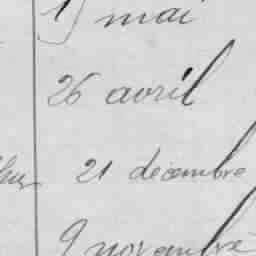 mai
26 avril
21 décembre
9 novembre